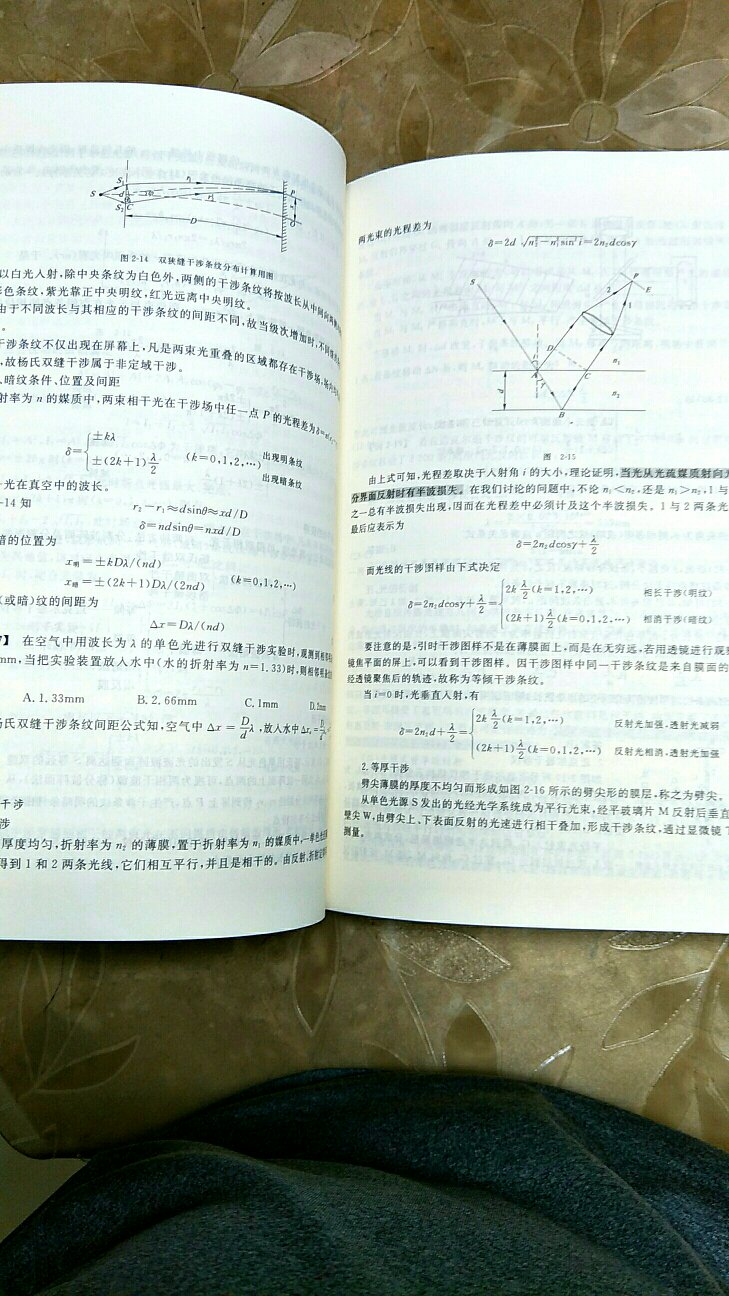 图 2-14 双狭缝干涉条纹分布计算用图
以白光入射,除中央条纹为白色外,两侧的干涉条纹将按波长从中间向两侧
彩色条纹,紫光靠近中央明纹,红光远离中央明纹。
由于不同波长与其相应的干涉条纹的间距不同,故当级次增加时,不同
干涉条纹不仅出现在屏幕上,凡是两束光重叠的区域都存在干涉场,
,故杨氏双缝干涉属于非定域干涉。
、暗纹条件、位置及间距
射率为 n 的媒质中,两束相干光在干涉场中任一点 P 的光程差为
δ={±kλ 出现明条纹
±(2k+1)λ/2 (k=0,1,2,…) 出现暗条纹
—光在真空中的波长。
-14 知
r₂-r₁≈dsinθ≈xd/D
δ=ndsinθ=nxd/D
暗的位置为
x明=±kDλ/(nd)
x暗=±(2k+1)Dλ/(2nd) (k=0,1,2,…)
(或暗)纹的间距为
Δx=Dλ/(nd)
】 在空气中用波长为 λ 的单色光进行双缝干涉实验时,观测到
mm,当把实验装置放入水中(水的折射率为 n=1.33)时,则相邻
A. 1.33mm B. 2.66mm C. 1mm D. 2mm
杨氏双缝干涉条纹间距公式知,空气中 Δx=D/d λ,放入水中
干涉
涉
厚度均匀,折射率为 n₂ 的薄膜,置于折射率为 n₁ 的媒质中,一单色
得到 1 和 2 两条光线,它们相互平行,并且是相干的。由反射、
S
S₁
S₂
C
d
r₁
r₂
D
P
O
两光束的光程差为
δ=2d√(n₂²-n₁²sin²i)=2n₂dcosγ
S
P
E
2
1
D
A
C
B
i
γ
d
n₁
n₂
图 2-15
由上式可知,光程差取决于入射角 i 的大小,理论证明,当光从光疏媒质射向
分界面反射时有半波损失。在我们讨论的问题中,不论 n₁<n₂,还是 n₁>n₂,1 与
之一总有半波损失出现,因而在光程差中必须计及这个半波损失。1 与 2 两条光
最后应表示为
δ=2n₂dcosγ+λ/2
而光线的干涉图样由下式决定
δ=2n₂dcosγ+λ/2={2k λ/2 (k=1,2,…) 相长干涉(明纹)
(2k+1)λ/2 (k=0,1,2,…) 相消干涉(暗纹)
要注意的是,引时干涉图样不是在薄膜面上,而是在无穷远,若用透镜进行观
镜焦平面的屏上,可以看到干涉图样。因干涉图样中同一干涉条纹是来自膜面的
经透镜聚焦后的轨迹,故称为等倾干涉条纹。
当 i=0 时,光垂直入射,有
δ=2n₂d+λ/2={2k λ/2 (k=1,2,…) 反射光加强,透射光减弱
(2k+1)λ/2 (k=0,1,2,…) 反射光相消,透射光加强
2. 等厚干涉
劈尖薄膜的厚度不均匀而形成如图 2-16 所示的劈尖形的膜层,称之为劈尖。
从单色光源 S 发出的光经光学系统成为平行光束,经平玻璃片 M 反射后垂直
劈尖 W,由劈尖上、下表面反射的光速进行相干叠加,形成干涉条纹,通过显微镜
测量。